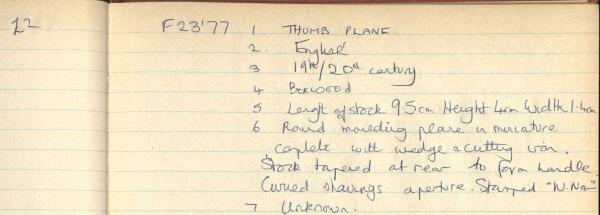 12 F23'77 1 THUMB PLANE
2. English
3 19th/20th century
4 Boxwood
5 Length of stock 9.5cm Height 4cm Width 1.4cm
6 Round moulding plane in miniature
complete with wedge & cutting iron.
Stock tapered at rear to form handle
Curved shavings aperture. Stamped "W.Na
7 Unknown.